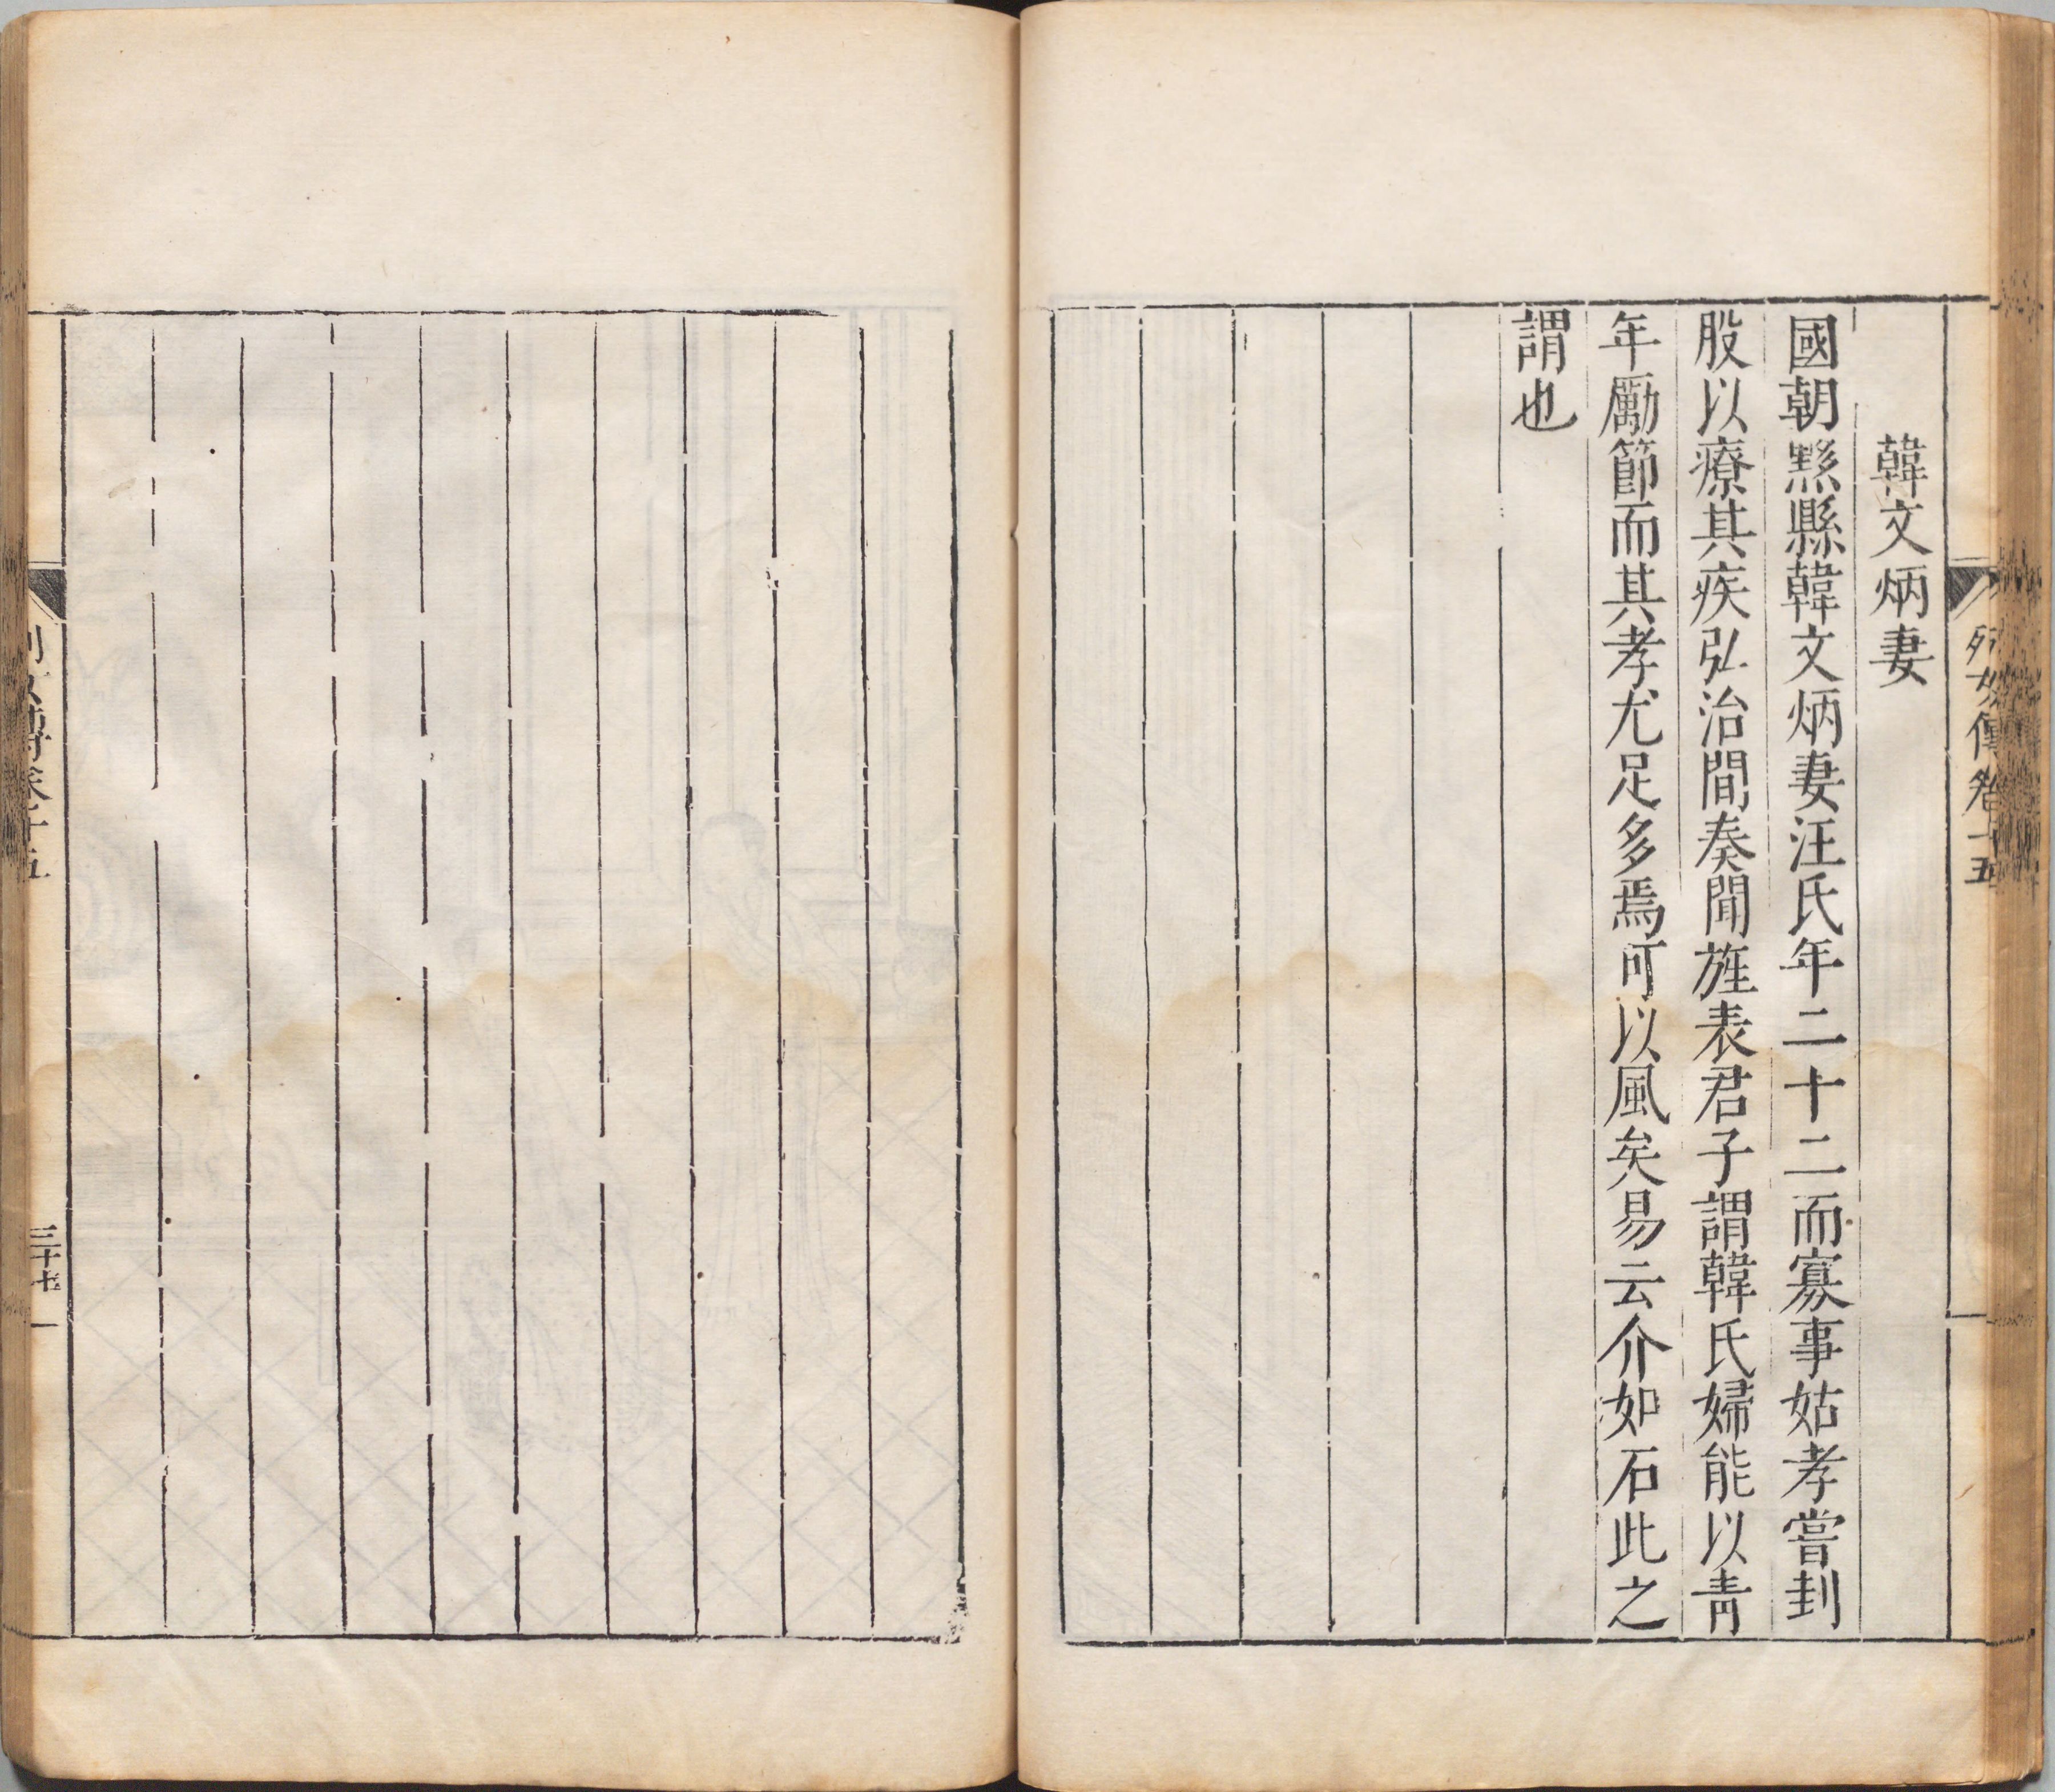 列女傳卷十五
韓文炳妻
國朝黟縣韓文炳妻汪氏年二十二而寡事姑孝嘗刲
股以療其疾弘治間奏聞旌表君子謂韓氏婦能以青
年勵節而其孝尤足多焉可以風矣易云介如石此之
謂也
列女傳卷十五